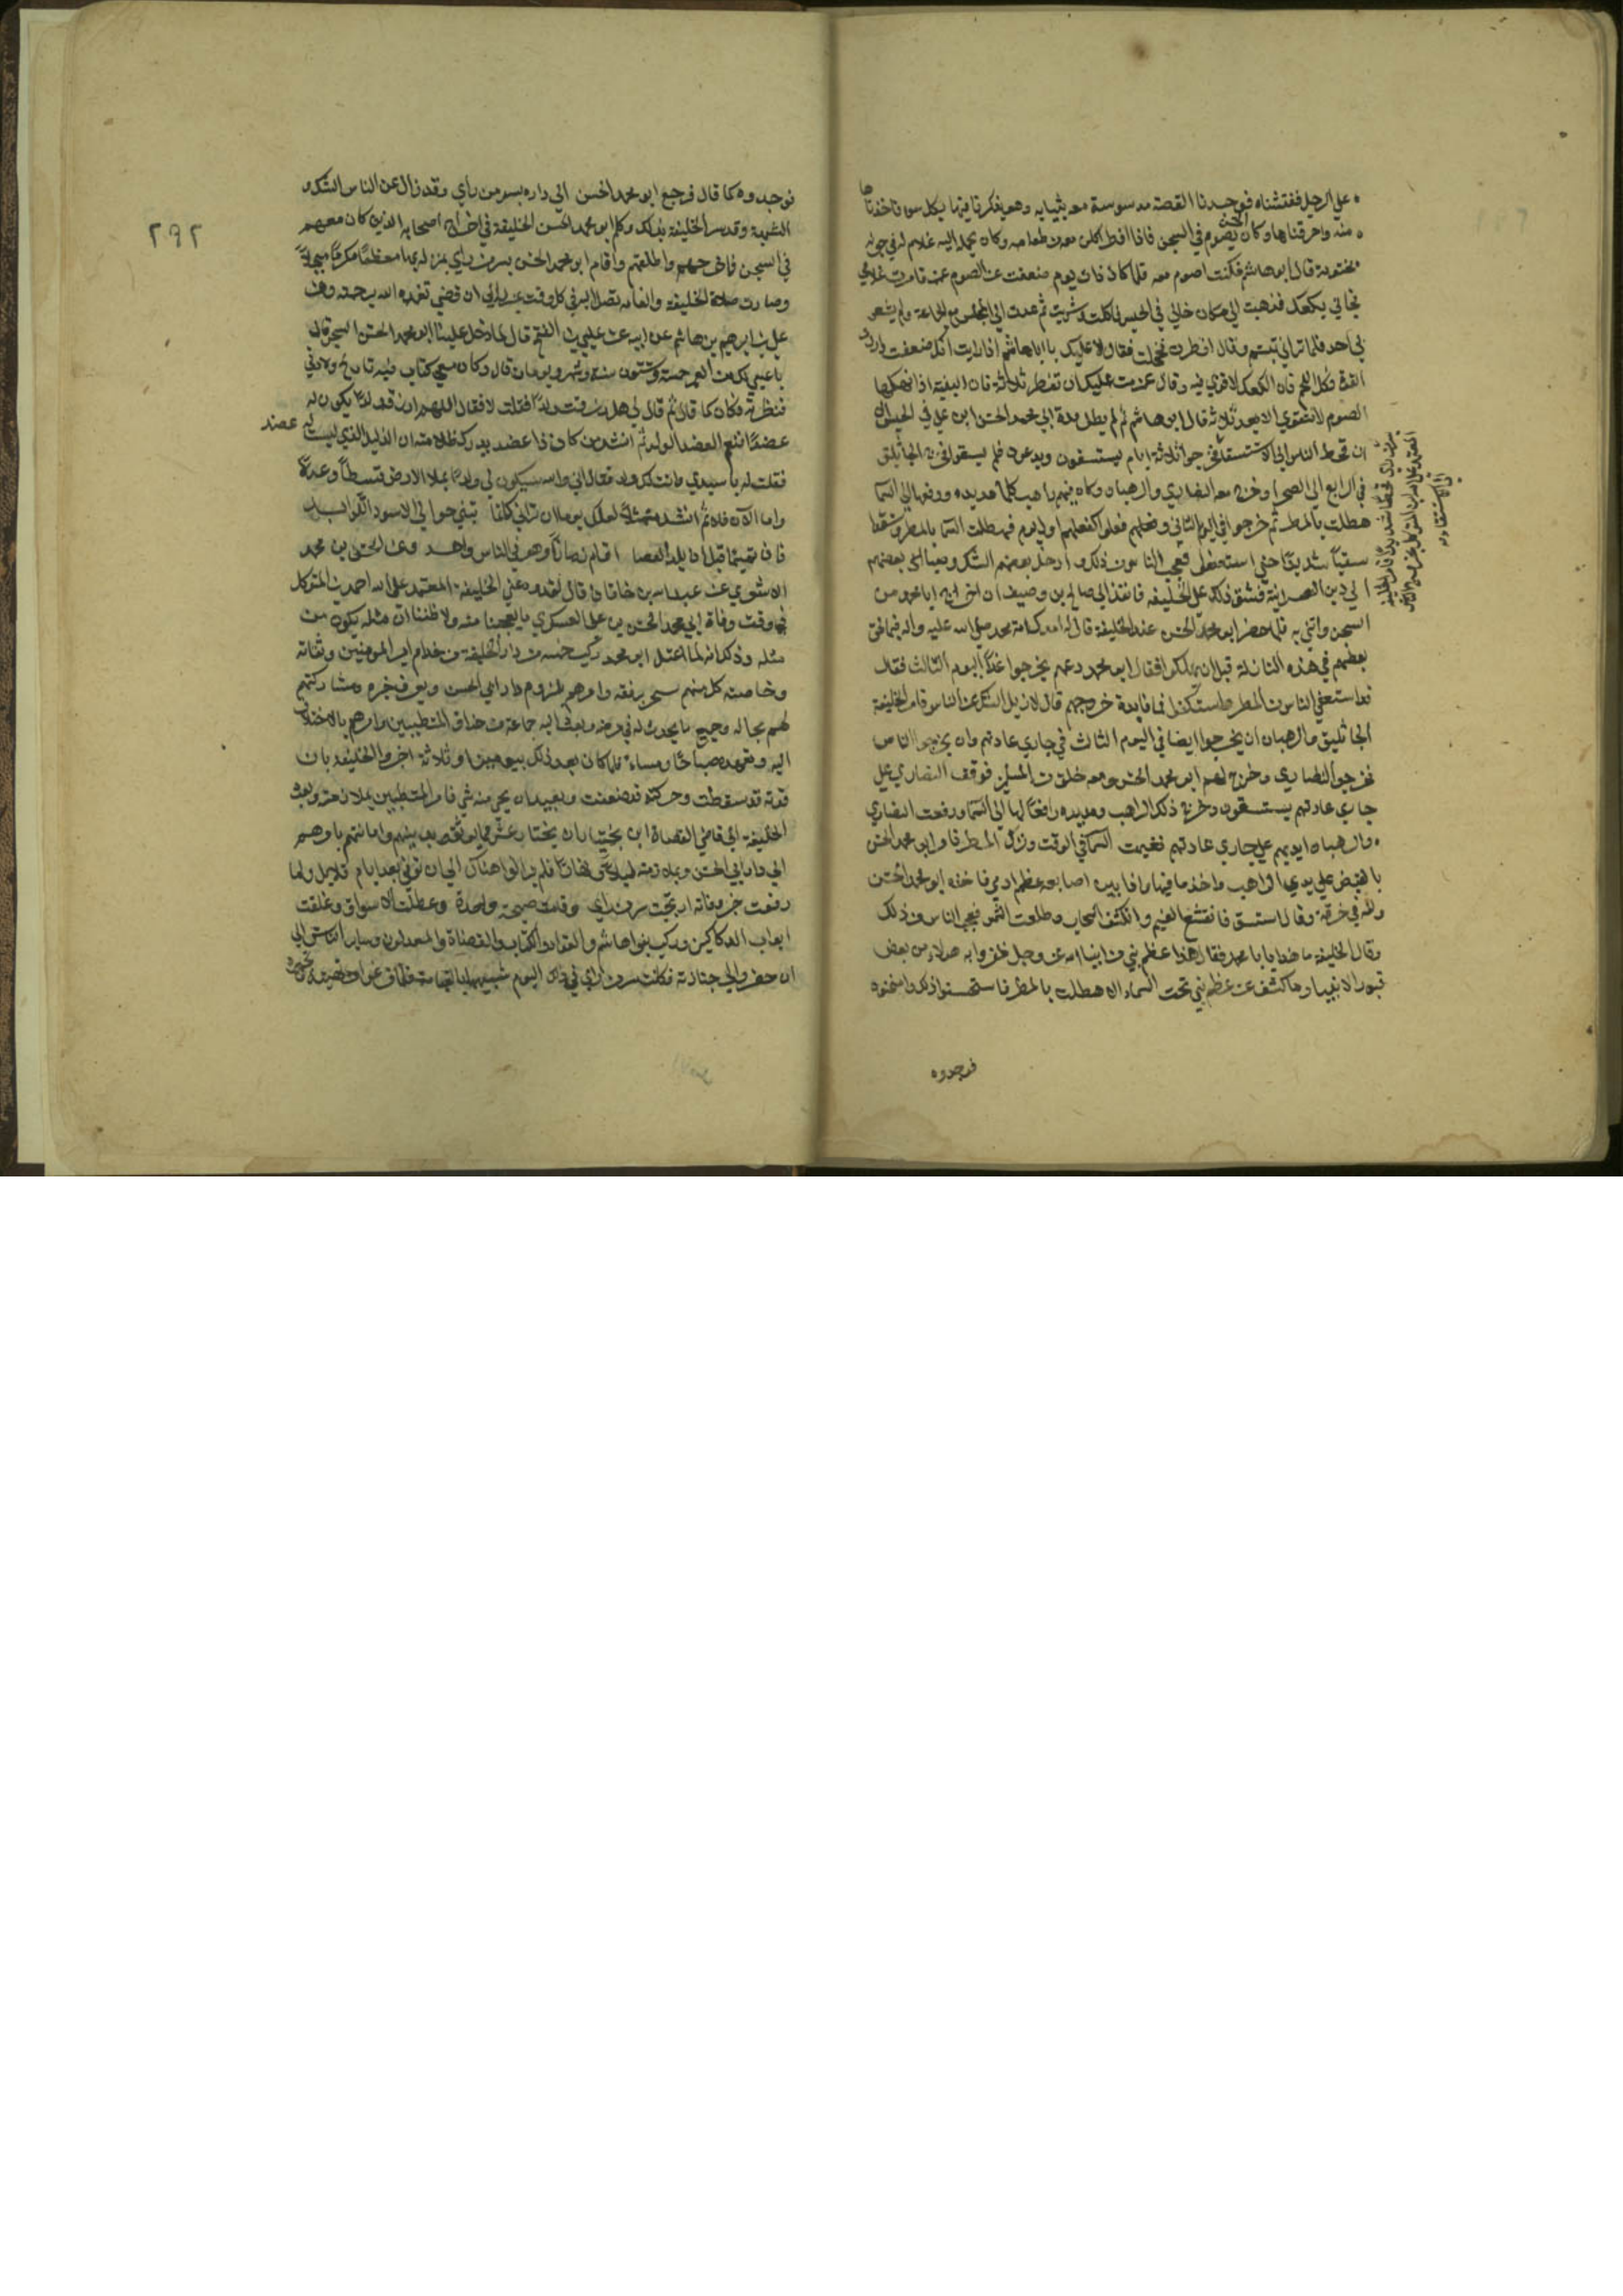 على الرجل ففتشناه فوجدنا القصة مدسوسة معه بثيابه وهو يذكرنا فيها بكل سوء فاخذناها
منه واحرقناها وكان الحسن يصوم في السجن فاذا افطر اكلنا معه من طعامه وكان يحمله اليه غلام له في جونه
مختومة قال ابو هاشم فكنت اصوم معه فلما كان ذات يوم ضعفت عن الصوم فامرت غلامي
فجاني بكعك فذهبت الى مكان خالي في الحبس فاكلت وشربت ثم عدت الى المجلس مع الجماعة ولم يشعر
بي احد فلما رآني تبسم وقال افطرت فخجلت فقال لا عليك يا ابا هاشم اذا رايت انك ضعفت واردت
القوة فكل اللحم فان الكعك لا قوة فيه وقال عزمت عليك ان تفطر ثلاثة فان البنية اذا انهكها
الصوم لا تتقوى الا بعد ثلاثة قال ابو هاشم ثم لم يطل مدة ابي محمد الحسن ابن علي في الحبس الا
ان قحط الناس بسر من راى قحطا شديدا فامر الخليفة
المعتمد على الله ابن المتوكل بخروج الناس
الى الاستسقاء فخرجوا ثلاثة ايام يستسقون ويدعون فلم يسقوا فخرج الجاثليق
في الرابع الى الصحرا وخرج معه النصارى والرهبان وكان فيهم راهب كلما مد يده ورفعها الى السما
هطلت بالمطر ثم خرجوا في اليوم الثاني وفعلهم فعلوا كفعلهم اول يوم فهطلت السما بالمطر وسقوا
سقيا شديدا حتى استعفوا فعجب الناس من ذلك وداخل بعضهم الشك وصبا بعضهم
الى دين النصرانية فشق ذلك على الخليفه فانفذ الى صالح بن وصيف ان اخرج ابا محمد من
السجن واتني به فلما حضر ابو محمد الحسن عند الخليفة قال له ادرك امة محمد صلى الله عليه واله فيما لحق
بعضهم في هذه النازلة قبل ان يهلكوا فقال ابو محمد دعهم يخرجوا غدا اليوم الثالث فقال
قد استعفى الناس من المطر واستكفوا فما فايدة خروجهم قال لازيل الشك عن الناس فامر الخليفة
الجاثليق والرهبان ان يخرجوا ايضا في اليوم الثالث في جاري عادتهم وان يخرجوا الناس
فخرجوا النصارى وخرج لهم ابو محمد الحسن ومعه خلق من المسلمين فوقف النصارى على
جاري عادتهم يستسقون وخرج ذلك الراهب ومد يديه رافعا لها الى السما ورفعت النصارى
والرهبان ايديهم على جاري عادتهم فغيمت السما في الوقت ونزل المطر فامر ابو محمد الحسن
بالقبض على يدي الراهب واخذ ما فيها فاذا بين اصابعه عظم ادمي فاخذه ابو محمد الحسن
ولفه في خرقة وقال استسق فانقشع الغيم وانكشف السحاب وطلعت الشمس فعجب الناس من ذلك
وقال الخليفة ما هذا يا ابا محمد فقال هذا عظم نبي من انبياء الله عز وجل ظفر به هولاء من بعض
قبور الانبيا وما كشف عن عظم نبي تحت السماء الا هطلت بالمطر فاستحسنوا ذلك وامتحنوه
فوجدوه
٢٩٢
فوجدوه كما قال فرجع ابو محمد الحسن الى داره بسر من رأى وقد زال عن الناس الشك و
الشبهة وقد سر الخليفة بذلك وكلم ابو محمد الحسن الخليفة في اخراج اصحابه الذين كان معهم
في السجن فاخرجهم واطلقهم واقام ابو محمد الحسن بسر من رأى بمنزله بها معظما مكرما مبجلا
وصارت صلاة الخليفة وانعامه تصل اليه في كل وقت الى ان قضى تغمده الله برحمته وعن
علي بن ابرهيم بن هاشم عن ابيه عن عيسى بن الفتح قال لما دخل علينا ابو محمد الحسن السجن قال
يا عيسى لك من العمر خمسة وستون سنة وشهر ويومان قال وكان معي كتاب فيه تاريخ ولادتي
فنظرته فكان كما قال ثم قال لي هل رزقت ولدا فقلت لا فقال اللهم ارزقه ولدا يكون له
عضدا فنعم العضد الولد ثم انشد من كان ذا عضد يدرك ظلامته ان الذليل الذي ليست له عضد
فقلت له يا سيدي وانت لك ولد فقال اني والله سيكون لي ولد يملا الارض قسطا وعدلا
واما الآن فلا ثم انشد متمثلا لعلك يوما ان تراني كلفا بني حوالي الاسود اللوابد
فان تميما قبل ان يلد الحصا اقام زمانا وهو في الناس واحد وعن الحسن بن محمد
الاشعري عن عبد الله بن خاقان قال لقد ورد على الخليفة المعتمد على الله احمد بن المتوكل
في وقت وفاة ابي محمد الحسن بن علي العسكري ما تعجبنا منه ولا ظننا ان مثله يكون من
مثله وذلك انه لما اعتل ابو محمد ركب خمسة من دار الخليفة من خدام امير المومنين وثقاته
وخاصته كل منهم نحرير فقه وامرهم بلزوم دار ابي الحسن وتعرف خبره ومشاركتهم
لهم بحاله وجميع ما يحدث له في مرضه وبعث اليه جماعة من حذاق المتطببين وامرهم بالاختلاف
اليه وتعهده صباحا ومساء فلما كان بعد ذلك بيومين او ثلاثة اخبروا الخليفة بان
قوته قد سقطت وحركته قد ضعفت وبعيد ان يجي منه شي فامر المتطببين بملازمته وبعث
الخليفة الى قاضي القضاة ابن بختيار ان يختار عشرة ممن يوثق به بدينهم وامانتهم يامرهم
الى دار ابي الحسن وبملازمته ليلا ونهارا فلم يزالوا هناك الى ان توفي بعد ايام قلايل ولما
رفعت خبر وفاته ارتجت سر من راى وقامت صيحة واحدة وعطلت الاسواق وغلقت
ابواب الدكاكين وركب بنو هاشم والقواد والكتاب والقضاة والمعدلون وساير الناس الى
ان حضروا الى جنازته فكانت سر من راى في ذلك اليوم شبيها بالقيامة